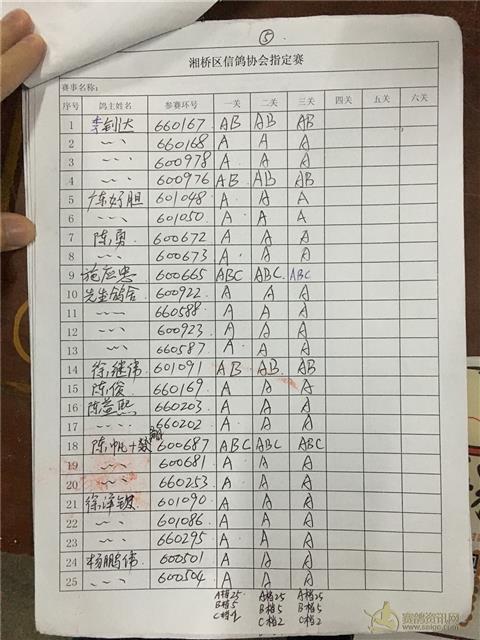 ⑤
湘桥区信鸽协会指定赛
赛事名称:
序号 鸽主姓名 参赛环号 一关 二关 三关 四关 五关 六关
1 李钊大 660167 AB AB AB
2 〃 660168 A A A
3 〃 600978 A A A
4 〃 600976 AB AB AB
5 陈好胆 601048 A A A
6 〃 601050 A A A
7 陈勇 600672 A A A
8 〃 600673 A A A
9 施应忠 600665 ABC ABC ABC
10 先生鸽舍 600922 A A A
11 〃 660588 A A A
12 〃 600923 A A A
13 〃 660587 A A A
14 徐继伟 601091 AB AB AB
15 陈俊 660169 A A A
16 陈萱熙 660203 A A A
17 〃 660202 A A A
18 陈帆+ 600687 ABC ABC ABC
19 〃 600681 A A A
20 〃 660253 A A A
21 徐泽钡 601090 A A A
22 〃 601086 A A A
23 〃 660295 A A A
24 杨鹏伟 600501 A A A
25 〃 600504 A A A
A格25 A格25 A格25
B格5 B格5 B格5
C格2 C格2 C格2
赛鸽资讯网
www.saige.com